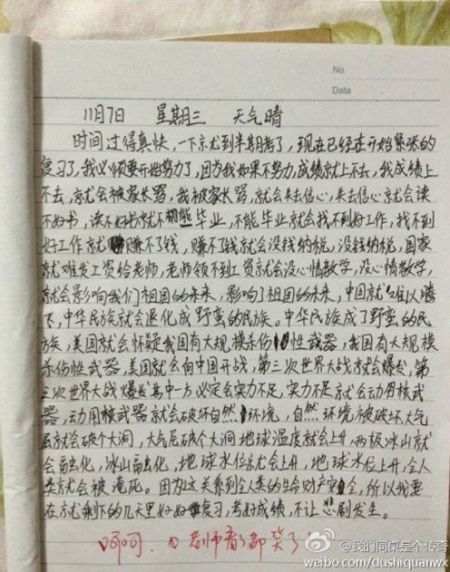 No.
Data
11月7日 星期三 天气晴
时间过得真快,一下就到半期考了,现在已经在开始紧张的
复习了,我必须要开始努力了,因为我如果不努力,成绩就上不去,我成绩上
不去,就会被家长骂,我被家长骂,就会失去信心,失去信心就会读
不好书,读不好书就不能毕业,不能毕业就会找不到好工作,找不到
好工作就赚不了钱,赚不了钱就会没钱纳税,没钱纳税,国家
就难发工资给老师,老师领不到工资就会没心情教学,没心情教学,
就会影响我们祖国的未来,影响了祖国的未来,中国就难以腾
飞,中华民族就会退化成野蛮的民族。中华民族成了野蛮的民
族,美国就会怀疑我国有大规模杀伤性武器,我国有大规模
杀伤性武器,美国就会向中国开战,第三次世界大战就会爆发,第
三次世界大战爆发其中一方必定会实力不足,实力不足就会动用核武
器,动用核武器就会破坏自然环境,自然环境被破坏,大气
层就会破个大洞,大气层破个大洞地球温度就会上升,两极冰山就
会融化,冰山融化,地球水位就会上升,地球水位上升,全人
类就会被淹死。因为这关系到全人类的生命财产安全,所以我要
在就剩下的几天里好好复习,考好成绩,不让悲剧发生。
呵呵.老师看了都笑了
@我的同桌是个传奇
weibo.com/dushiquanwx